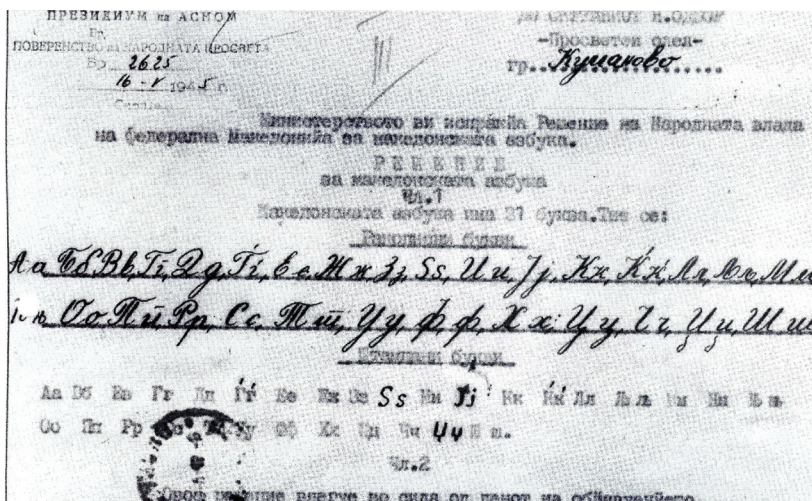 ПРЕЗИДИУМ на АСНОМ
ПОВЕРЕНСТВО НАРОДНАТА ПРОСВЕТА
Бр 2625
16-V 1945 г.
-Просветен одел-
гр. Куманово
Министерството ви испраќа Решение на Народната влада
на федерална Македонија за македонската азбука.
РЕШЕНИЕ
за македонската азбука
Чл.1
Македонската азбука има 31 буква. Тие се:
Ракописни букви
А а, Б б, В в, Г г, Д д, Ѓ ѓ, Е е, Ж ж, З з, Ѕ ѕ, И и, Ј ј, К к, Ќ ќ, Л л, Љ љ, М м
О о, П п, Р р, С с, Т т, У у, Ф ф, Х х, Ц ц, Ч ч, Џ џ, Ш ш
Штампани букви
Аа Бб Вв Гг Дд Ѓѓ Ее Жж Зз Ѕѕ Ии Јј Кк Ќќ Лл Љљ Мм Нн Њњ
Оо Пп Рр Сс Тт Уу Фф Хх Цц Чч Џџ Шш.
Чл.2
Овое решение влегуе во сила од денот на објавуењето